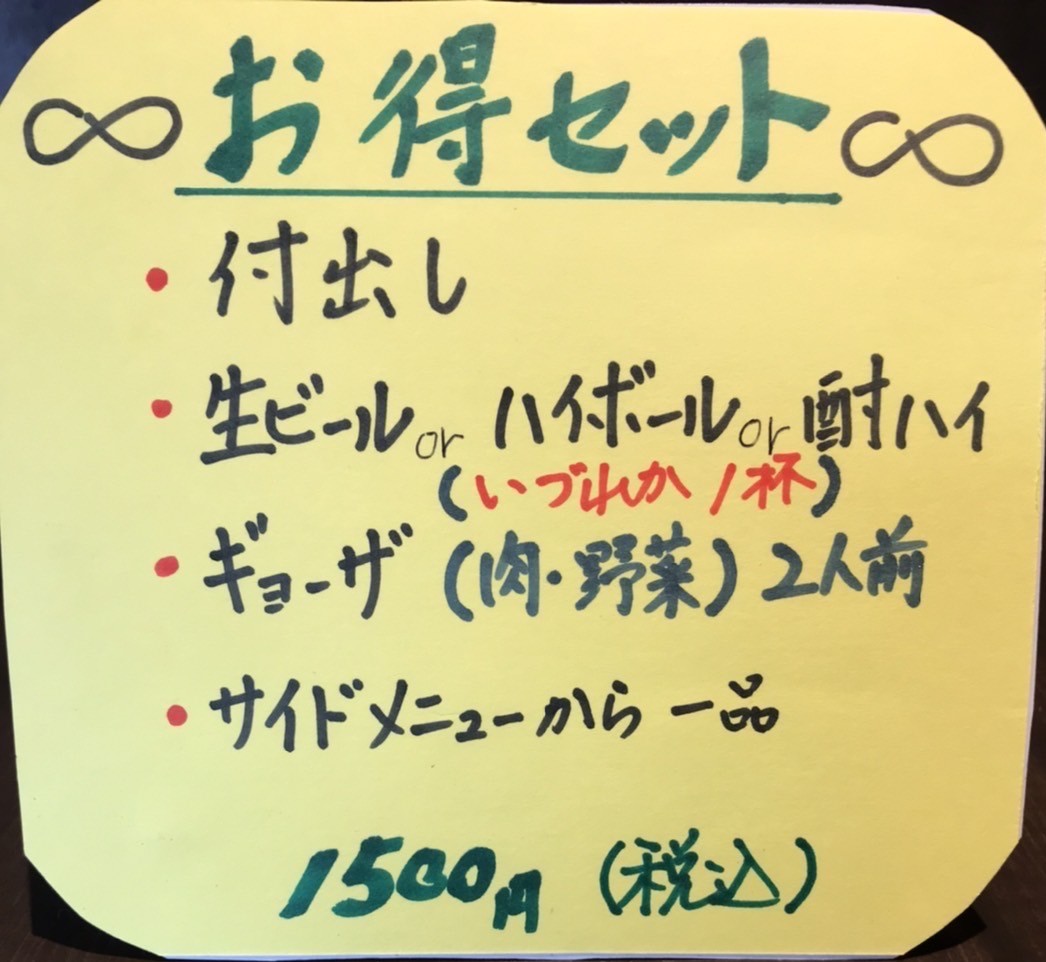 ∞お得セット∞
・付出し
・生ビール or ハイボール or 酎ハイ
(いづれか1杯)
・ギョーザ (肉・野菜) 2人前
・サイドメニューから一品
1500円 (税込)